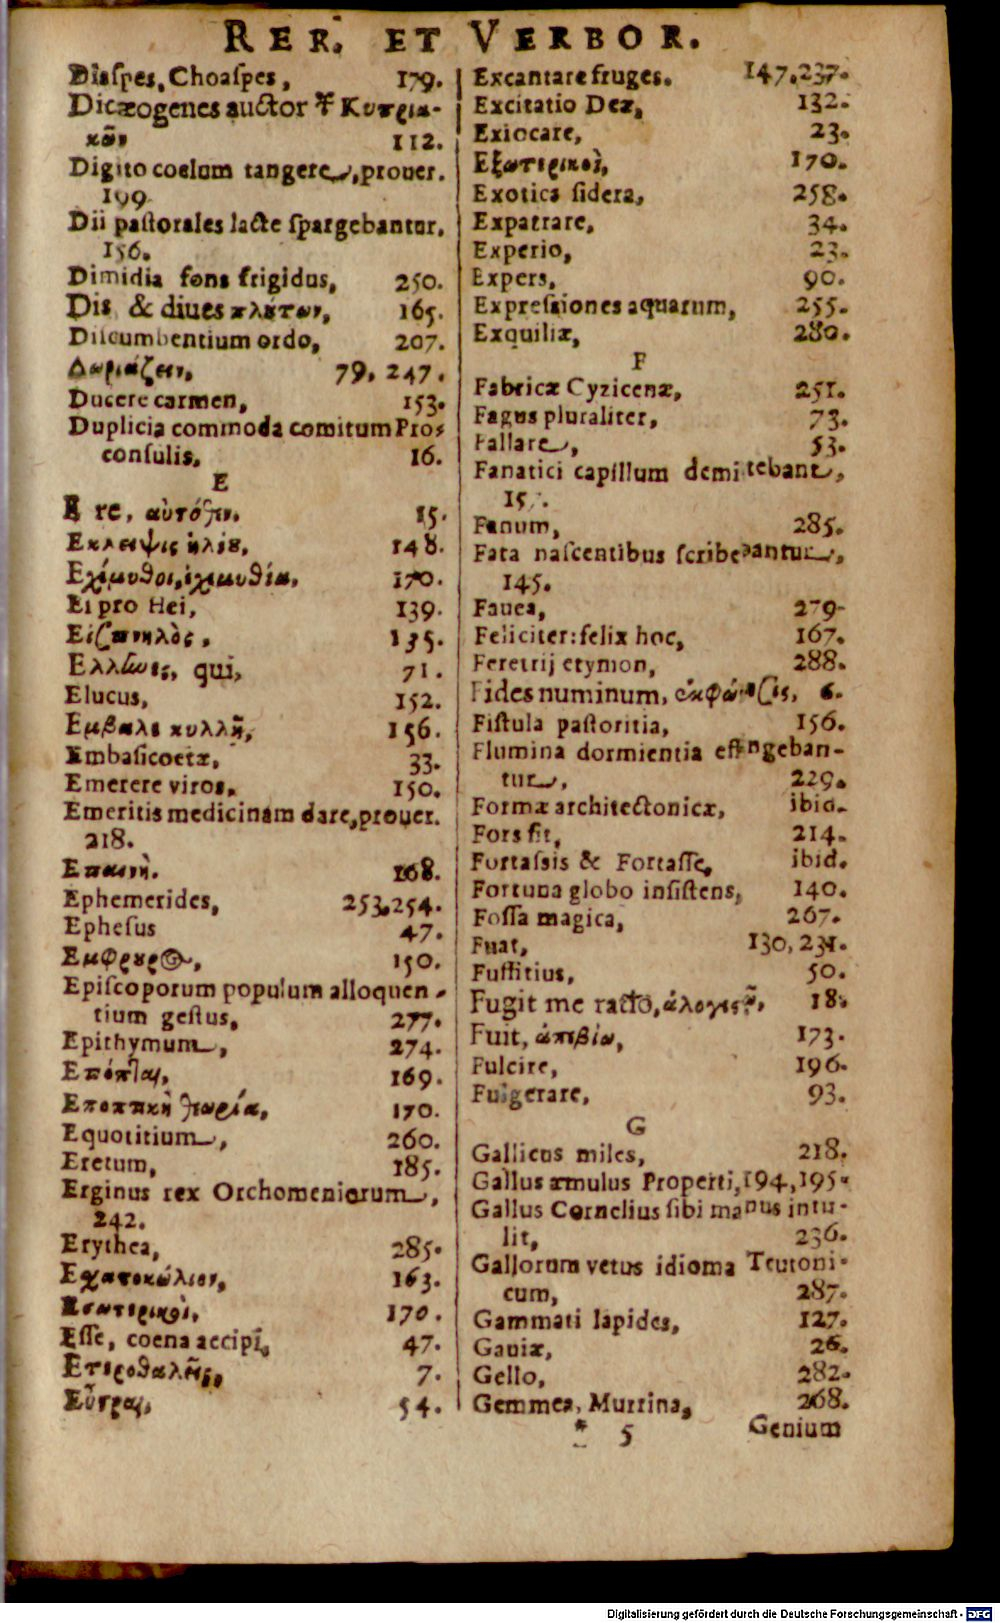 RER. ET VERBOR.
Diaspes, Choaspes, 179.
Dicæogenes auctor Κυπρια-
κῶν 112.
Digito coelum tangere, prouer.
199
Dii pastorales lacte spargebantur,
156.
Dimidia fons frigidus, 250.
Dis & diues πλούτων, 165.
Discumbentium ordo, 207.
Δωριάζειν, 79, 247.
Ducere carmen, 153.
Duplicia commoda comitum Pro-
consulis, 16.
E
E re, αὐτόθεν, 15.
Εκλειψις ἡλίου, 148.
Εχέμυθοι, ἐχεμυθία, 170.
Ei pro Hei, 139.
Εἰσπνηλὸς, 135.
qui, 71.
Elucus, 152.
Εμβαλε κυλλῇ, 156.
Embasicoetæ, 33.
Emerere viros, 150.
Emeritis medicinam dare, prouer.
218.
Επαινὴ. 168.
Ephemerides, 253, 254.
Ephesus 47.
Εμφρουρος, 150.
Episcoporum populum alloquen-
tium gestus, 277.
Epithymum, 274.
Επόπται, 169.
Εποπτικὴ θεωρία, 170.
Equotitium, 260.
Eretum, 185.
Erginus rex Orchomeniorum,
242.
Erythea, 285.
Εχατοκώλιον, 163.
Εσωτερικοὶ, 170.
Esse, coena accipi, 47.
Ετεροθαλῆς, 7.
Εὖστραι, 54.
Excantare fruges. 147, 237.
Excitatio Deæ, 132.
Exiocare, 23.
Εξωτερικοὶ, 170.
Exotica sidera, 258.
Expatrare, 34.
Experio, 23.
Expers, 90.
Expressiones aquarum, 255.
Exquiliæ, 280.
F
Fabricæ Cyzicenæ, 251.
Fagus pluraliter, 73.
Fallare, 53.
Fanatici capillum demittebant,
Fanum, 285.
Fata nascentibus scribebantur,
145.
Fauea, 279
Feliciter: felix hoc, 167.
Feretrij etymon, 288.
Fides numinum, 6.
Fistula pastoritia, 156.
Flumina dormientia effingeban-
tur, 229.
Formæ architectonicæ, ibid.
Fors fit, 214.
Fortassis & Fortasse, ibid.
Fortuna globo insistens, 140.
Fossa magica, 267.
Fuat, 130, 231.
Fuffitius, 50.
Fugit me ratio, 18.
Fuit, ἀπεβίω, 173.
Fulcire, 196.
Fulgerare, 93.
G
Gallicus miles, 218.
Gallus æmulus Properti, 194, 195.
Gallus Cornelius sibi manus intu-
lit, 236.
Gallorum vetus idioma Teutoni-
cum, 287.
Gammati lapides, 127.
Gauiæ, 26.
Gello, 282.
Gemmea, Murrina, 268.
* 5 Genium
Digitalisierung gefördert durch die Deutsche Forschungsgemeinschaft - DFG